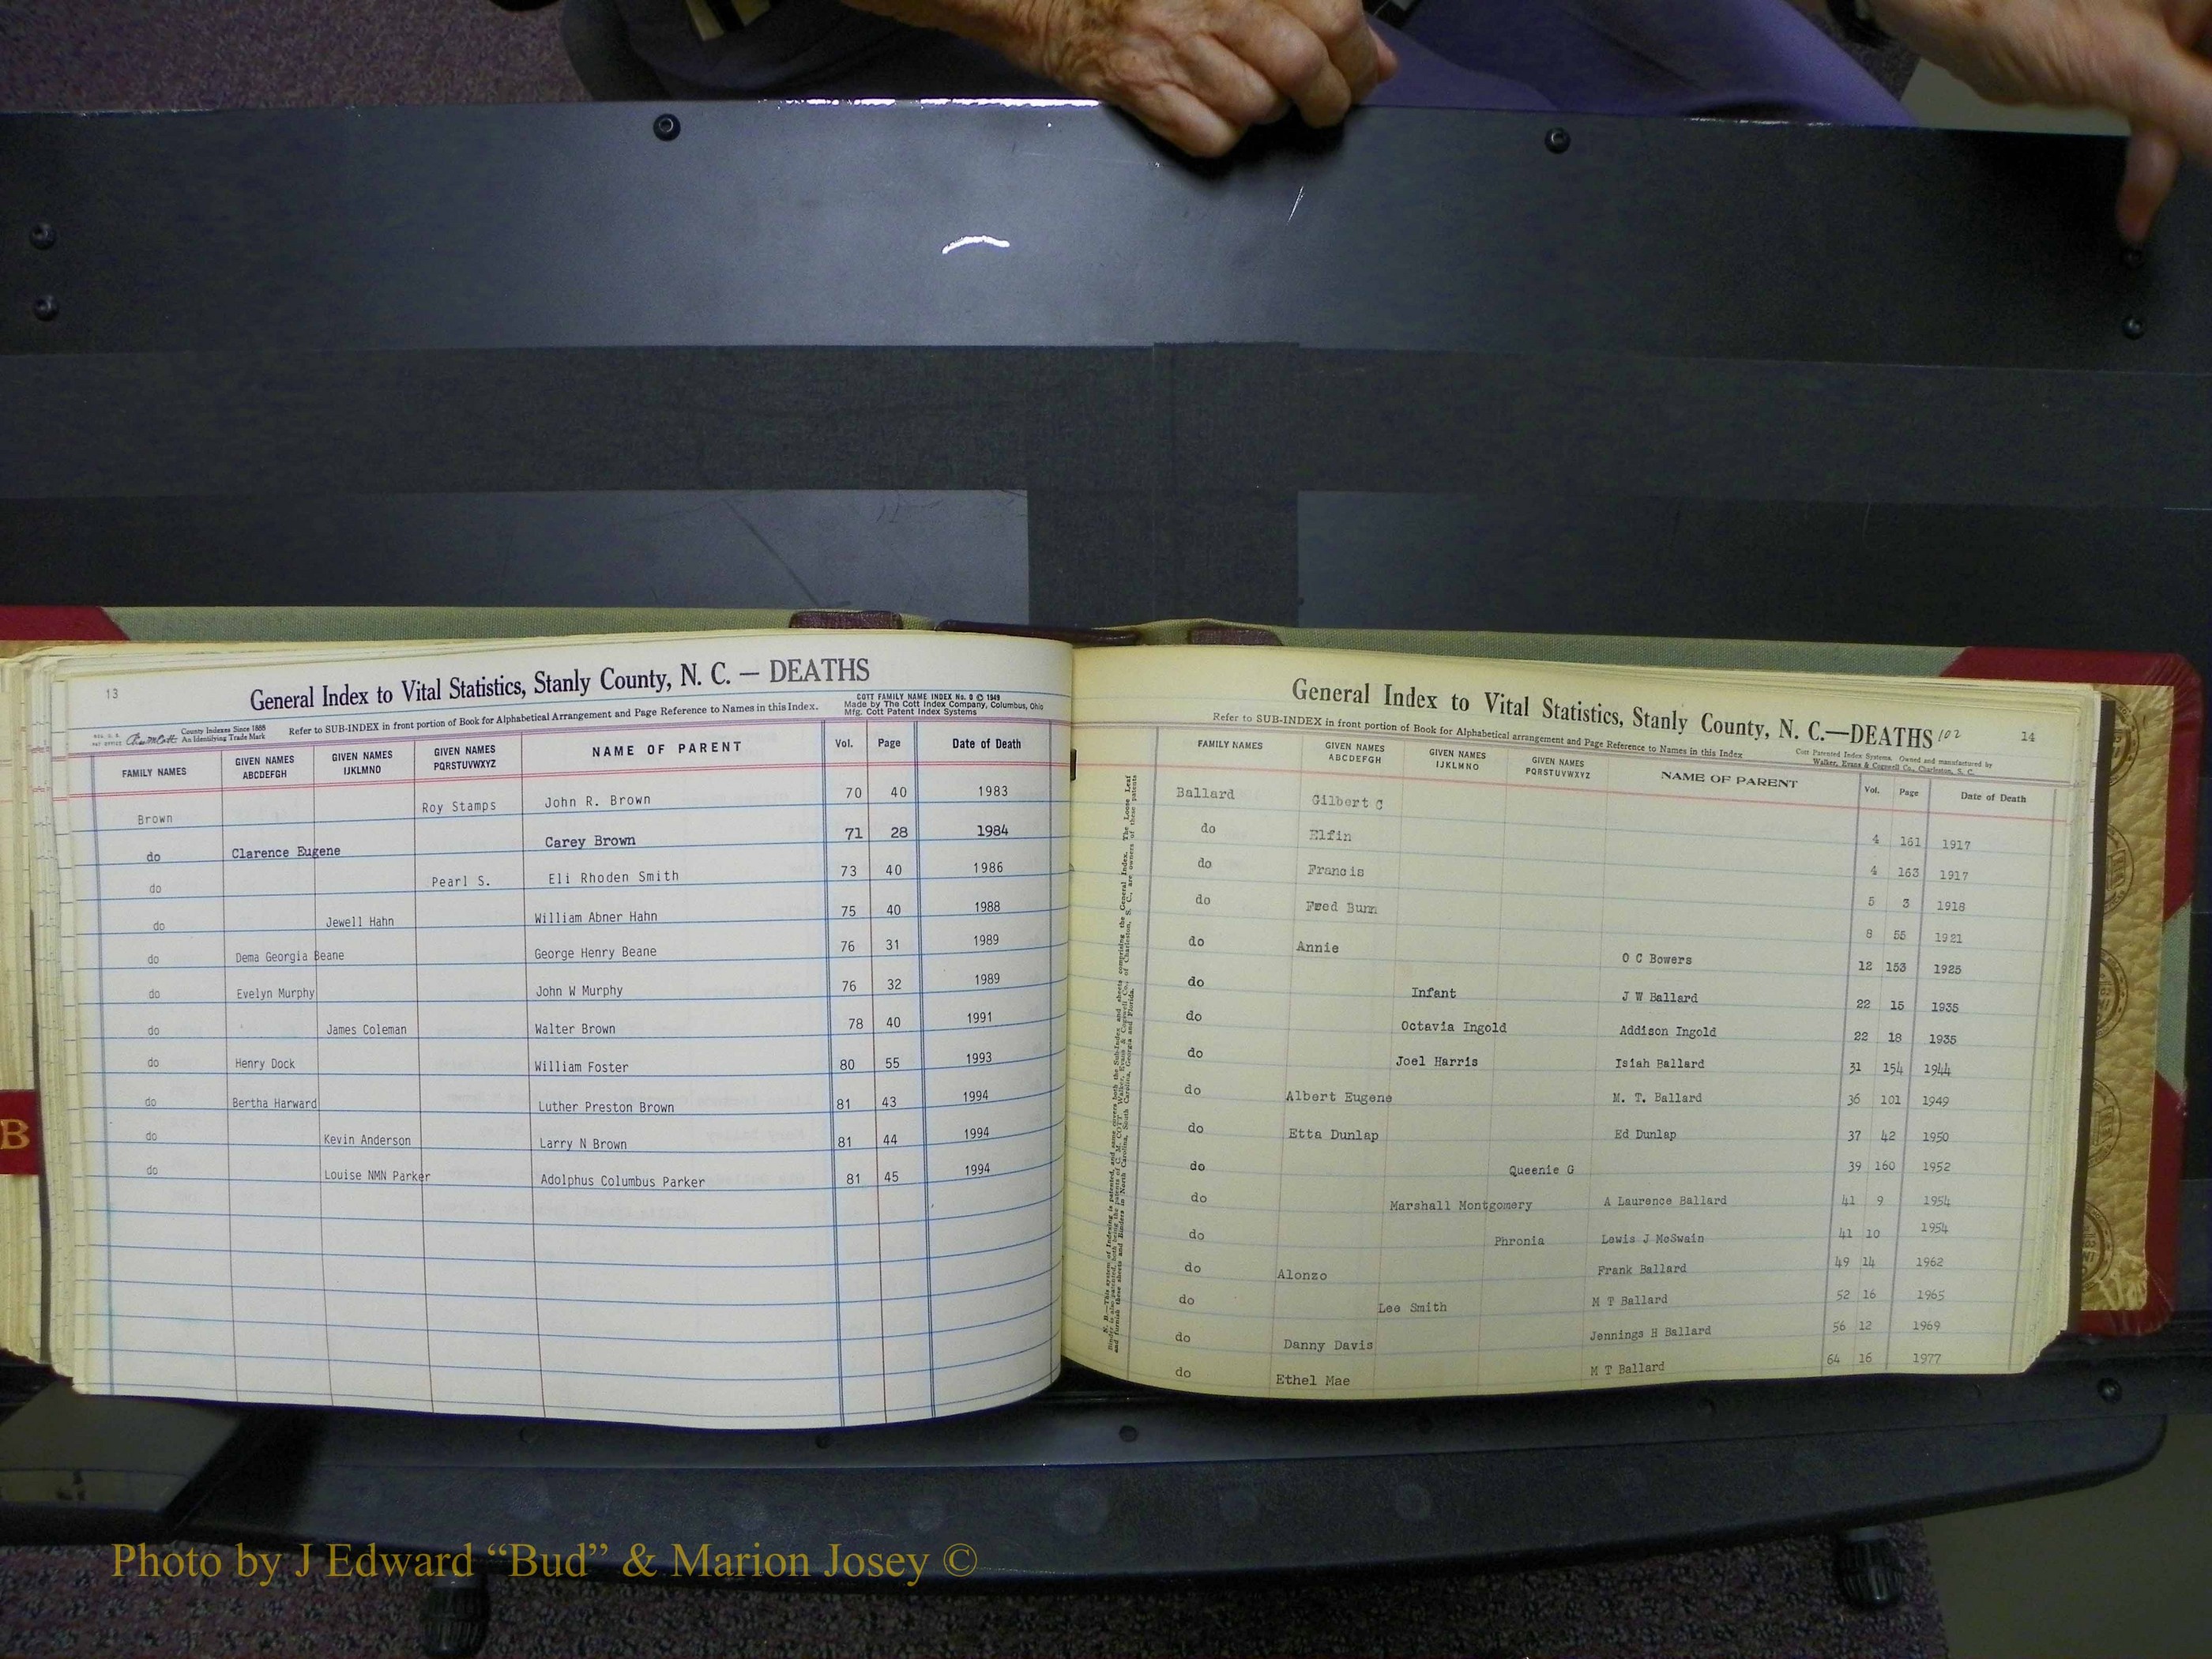 13
General Index to Vital Statistics, Stanly County, N. C. — DEATHS
COTT FAMILY NAME INDEX No. 0 © 1949
Made by The Cott Index Company, Columbus, Ohio
Mfg. Cott Patent Index Systems
County Indexes Since 1888
An Identifying Trade Mark
Refer to SUB-INDEX in front portion of Book for Alphabetical Arrangement and Page Reference to Names in this Index.
FAMILY NAMES GIVEN NAMES ABCDEFGH GIVEN NAMES IJKLMNO GIVEN NAMES PQRSTUVWXYZ NAME OF PARENT Vol. Page Date of Death
Brown Roy Stamps John R. Brown 70 40 1983
do Clarence Eugene Carey Brown 71 28 1984
do Pearl S. Eli Rhoden Smith 73 40 1986
do Jewell Hahn William Abner Hahn 75 40 1988
do Dema Georgia Beane George Henry Beane 76 31 1989
do Evelyn Murphy John W Murphy 76 32 1989
do James Coleman Walter Brown 78 40 1991
do Henry Dock William Foster 80 55 1993
do Bertha Harward Luther Preston Brown 81 43 1994
do Kevin Anderson Larry N Brown 81 44 1994
do Louise NMN Parker Adolphus Columbus Parker 81 45 1994
B
General Index to Vital Statistics, Stanly County, N. C.—DEATHS 102
14
Refer to SUB-INDEX in front portion of Book for Alphabetical arrangement and Page Reference to Names in this Index
Cott Patented Index Systems. Owned and manufactured by
Walker, Evans & Cogswell Co., Charleston, S. C.
FAMILY NAMES GIVEN NAMES ABCDEFGH GIVEN NAMES IJKLMNO GIVEN NAMES PQRSTUVWXYZ NAME OF PARENT Vol. Page Date of Death
Ballard Gilbert C 4 161 1917
do Elfin 4 163 1917
do Francis 5 3 1918
do Fred Bunn 8 55 1921
do Annie O C Bowers 12 153 1925
do Infant J W Ballard 22 15 1935
do Octavia Ingold Addison Ingold 22 18 1935
do Joel Harris Isiah Ballard 31 154 1944
do Albert Eugene M. T. Ballard 36 101 1949
do Etta Dunlap Ed Dunlap 37 42 1950
do Queenie G 39 160 1952
do Marshall Montgomery A Laurence Ballard 41 9 1954
do Phronia Lewis J McSwain 41 10 1954
do Alonzo Frank Ballard 49 14 1962
do Lee Smith M T Ballard 52 16 1965
do Danny Davis Jennings H Ballard 56 12 1969
do Ethel Mae M T Ballard 64 16 1977
Photo by J Edward “Bud” & Marion Josey ©